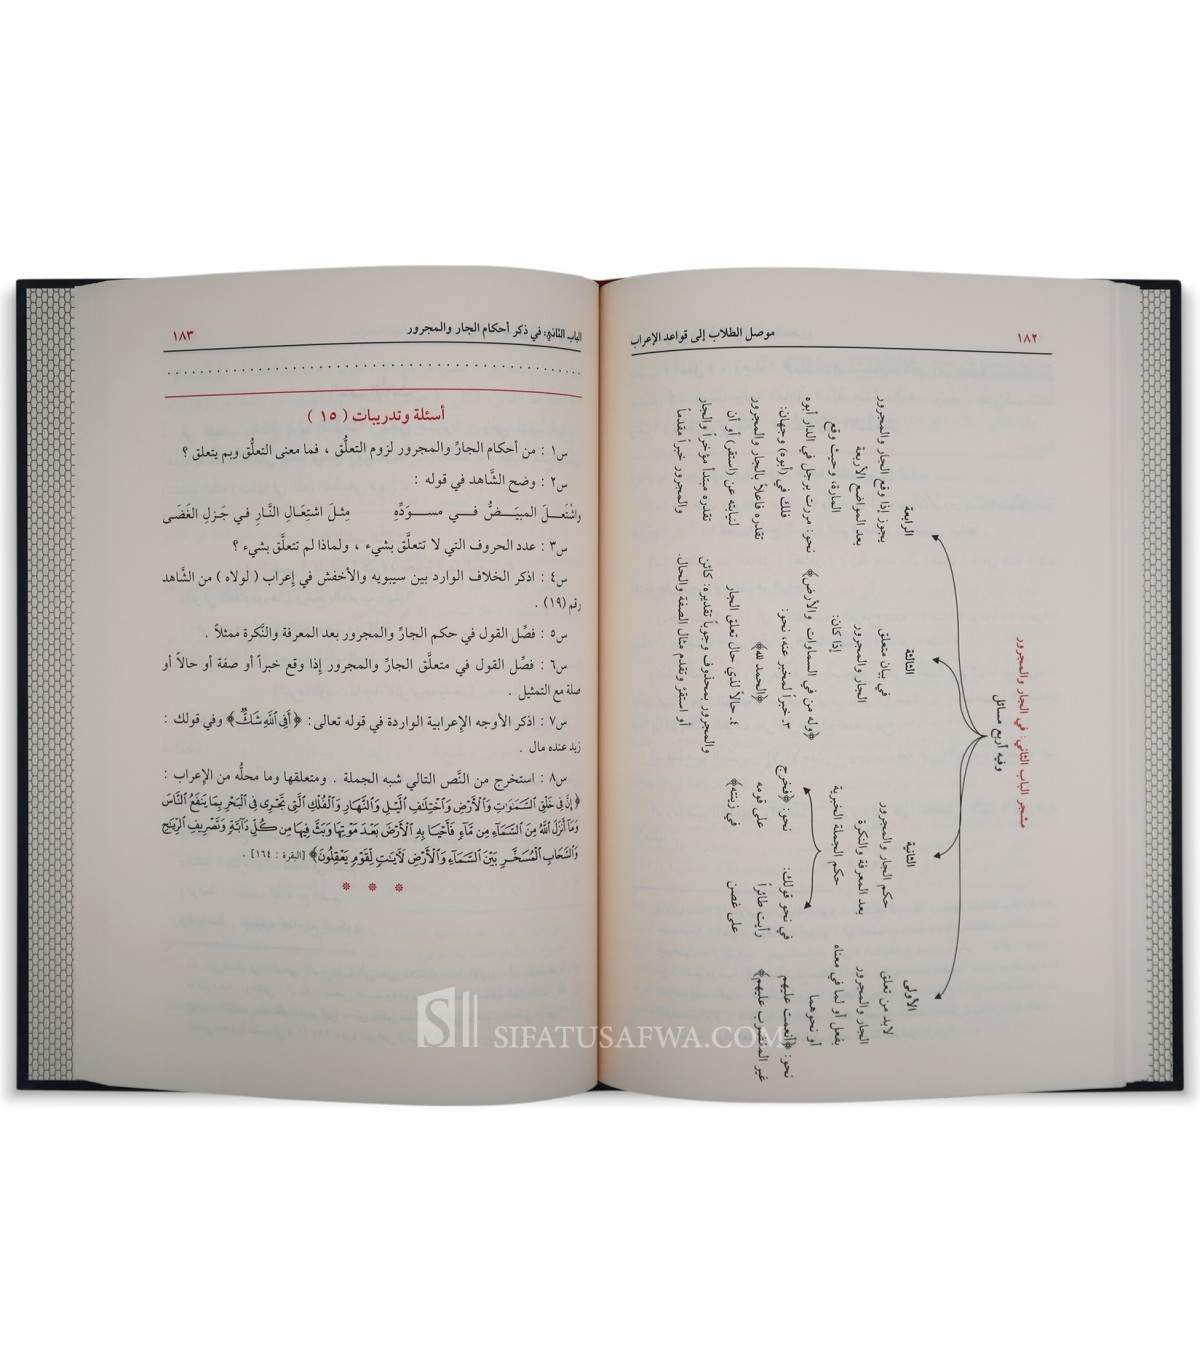 ١٨٢
موصل الطلاب إلى قواعد الإعراب
مشجر الباب الثاني: في الجار والمجرور
وفيه أربع مسائل
الأولى
لابد من تعلق
الجار والمجرور
بفعل أو لما في معناه
أو نحوهما
نحو: ﴿أنعمت عليهم
غير المغضوب عليهم﴾
الثانية
حكم الجار والمجرور
بعد المعرفة والنكرة
حكم الجملة الخبرية
في نحو قولك:
رأيت طائراً
على غصن
نحو: ﴿فخرج
على قومه
في زينته﴾
الثالثة
في بيان متعلق
الجار والمجرور
إذا كان:
﴿وله من في السماوات والأرض﴾
٣. خبراً لمخبر عنه، نحو:
﴿الحمد لله﴾
٤. حالاً لذي حال تعلق الجار
والمجرور بمحذوف وجوباً تقديره: كائن
أو استقرّ وتقدم مثال الصفة والحال.
الرابعة
يجوز إذا وقع الجار والمجرور
بعد المواضع الأربعة
المارة، وحيث وقع
نحو: مررت برجل في الدار أبوه
فلك في (أبوه) وجهان:
تقدره فاعلاً بالجار والمجرور
لنيابته عن (استقر) أو أن
تقدره مبتدأ مؤخراً والجار
والمجرور خبراً مقدماً
الباب الثاني: في ذكر أحكام الجار والمجرور
١٨٣
أسئلة وتدريبات ( ١٥ )
س١ : من أحكام الجارِّ والمجرور لزوم التعلُّق ، فما معنى التعلُّق وبم يتعلق ؟
س٢ : وضح الشَّاهد في قوله :
واشْتَعَلَ المبيَضُّ في مسوَدِّهِ مِثلَ اشتِعَالِ النَّارِ في جَزلِ الغَضَى
س٣ : عدد الحروف التي لا تتعلَّق بشيء ، ولماذا لم تتعلَّق بشيء ؟
س٤ : اذكر الخلاف الوارد بين سيبويه والأخفش في إعراب ( لولاه ) من الشَّاهد
رقم (١٩) .
س٥ : فصِّل القول في حكم الجارِّ والمجرور بعد المعرفة والنَّكرة ممثلاً .
س٦ : فصِّل القول في متعلَّق الجارِّ والمجرور إذا وقع خبراً أو صفة أو حالاً أو
صلة مع التمثيل .
س٧ : اذكر الأوجه الإعرابية الواردة في قوله تعالى: ﴿أَفِي ٱللَّهِ شَكٌّ﴾ وفي قولك :
زيد عنده مال .
س٨ : استخرج من النَّص التالي شبه الجملة . ومتعلقها وما محلُّه من الإعراب :
﴿إِنَّ فِي خَلْقِ ٱلسَّمَٰوَٰتِ وَٱلْأَرْضِ وَٱخْتِلَٰفِ ٱلَّيْلِ وَٱلنَّهَارِ وَٱلْفُلْكِ ٱلَّتِي تَجْرِي فِي ٱلْبَحْرِ بِمَا يَنفَعُ ٱلنَّاسَ
وَمَآ أَنزَلَ ٱللَّهُ مِنَ ٱلسَّمَآءِ مِن مَّآءٍ فَأَحْيَا بِهِ ٱلْأَرْضَ بَعْدَ مَوْتِهَا وَبَثَّ فِيهَا مِن كُلِّ دَآبَّةٍ وَتَصْرِيفِ ٱلرِّيَٰحِ
وَٱلسَّحَابِ ٱلْمُسَخَّرِ بَيْنَ ٱلسَّمَآءِ وَٱلْأَرْضِ لَءَايَٰتٍ لِّقَوْمٍ يَعْقِلُونَ﴾ [البقرة : ١٦٤] .
* * *
SIFATUSAFWA.COM